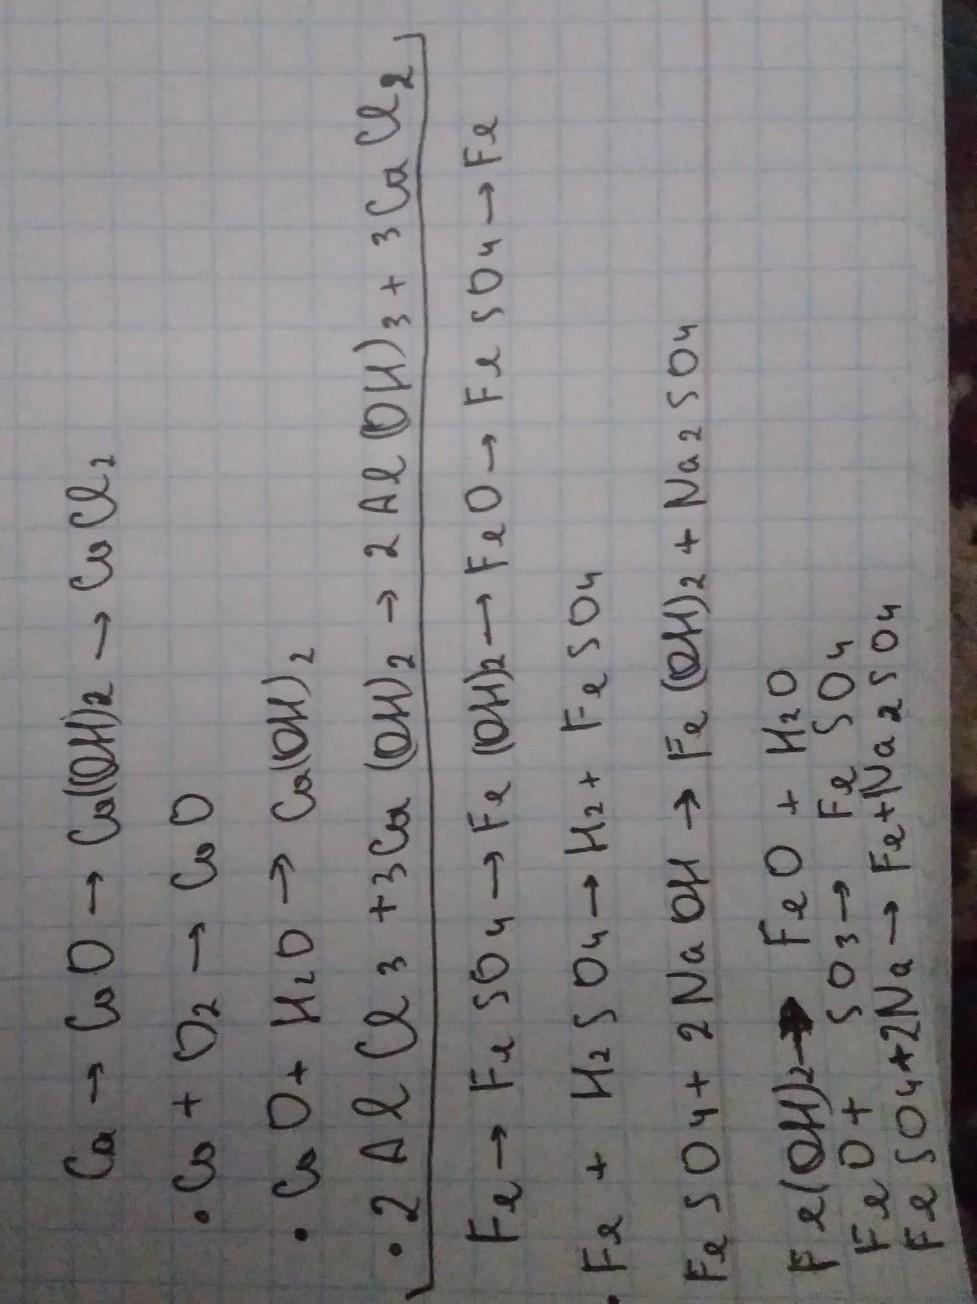 Ca → CaO → Ca(OH)2 → CaCl2
· Ca + O2 → CaO
· CaO + H2O → Ca(OH)2
· 2AlCl3 + 3Ca(OH)2 → 2Al(OH)3 + 3CaCl2
Fe → FeSO4 → Fe(OH)2 → FeO → FeSO4 → Fe
· Fe + H2SO4 → H2 + FeSO4
FeSO4 + 2NaOH → Fe(OH)2 + Na2SO4
Fe(OH)2 → FeO + H2O
FeO + SO3 → FeSO4
FeSO4 + 2Na → Fe + Na2SO4